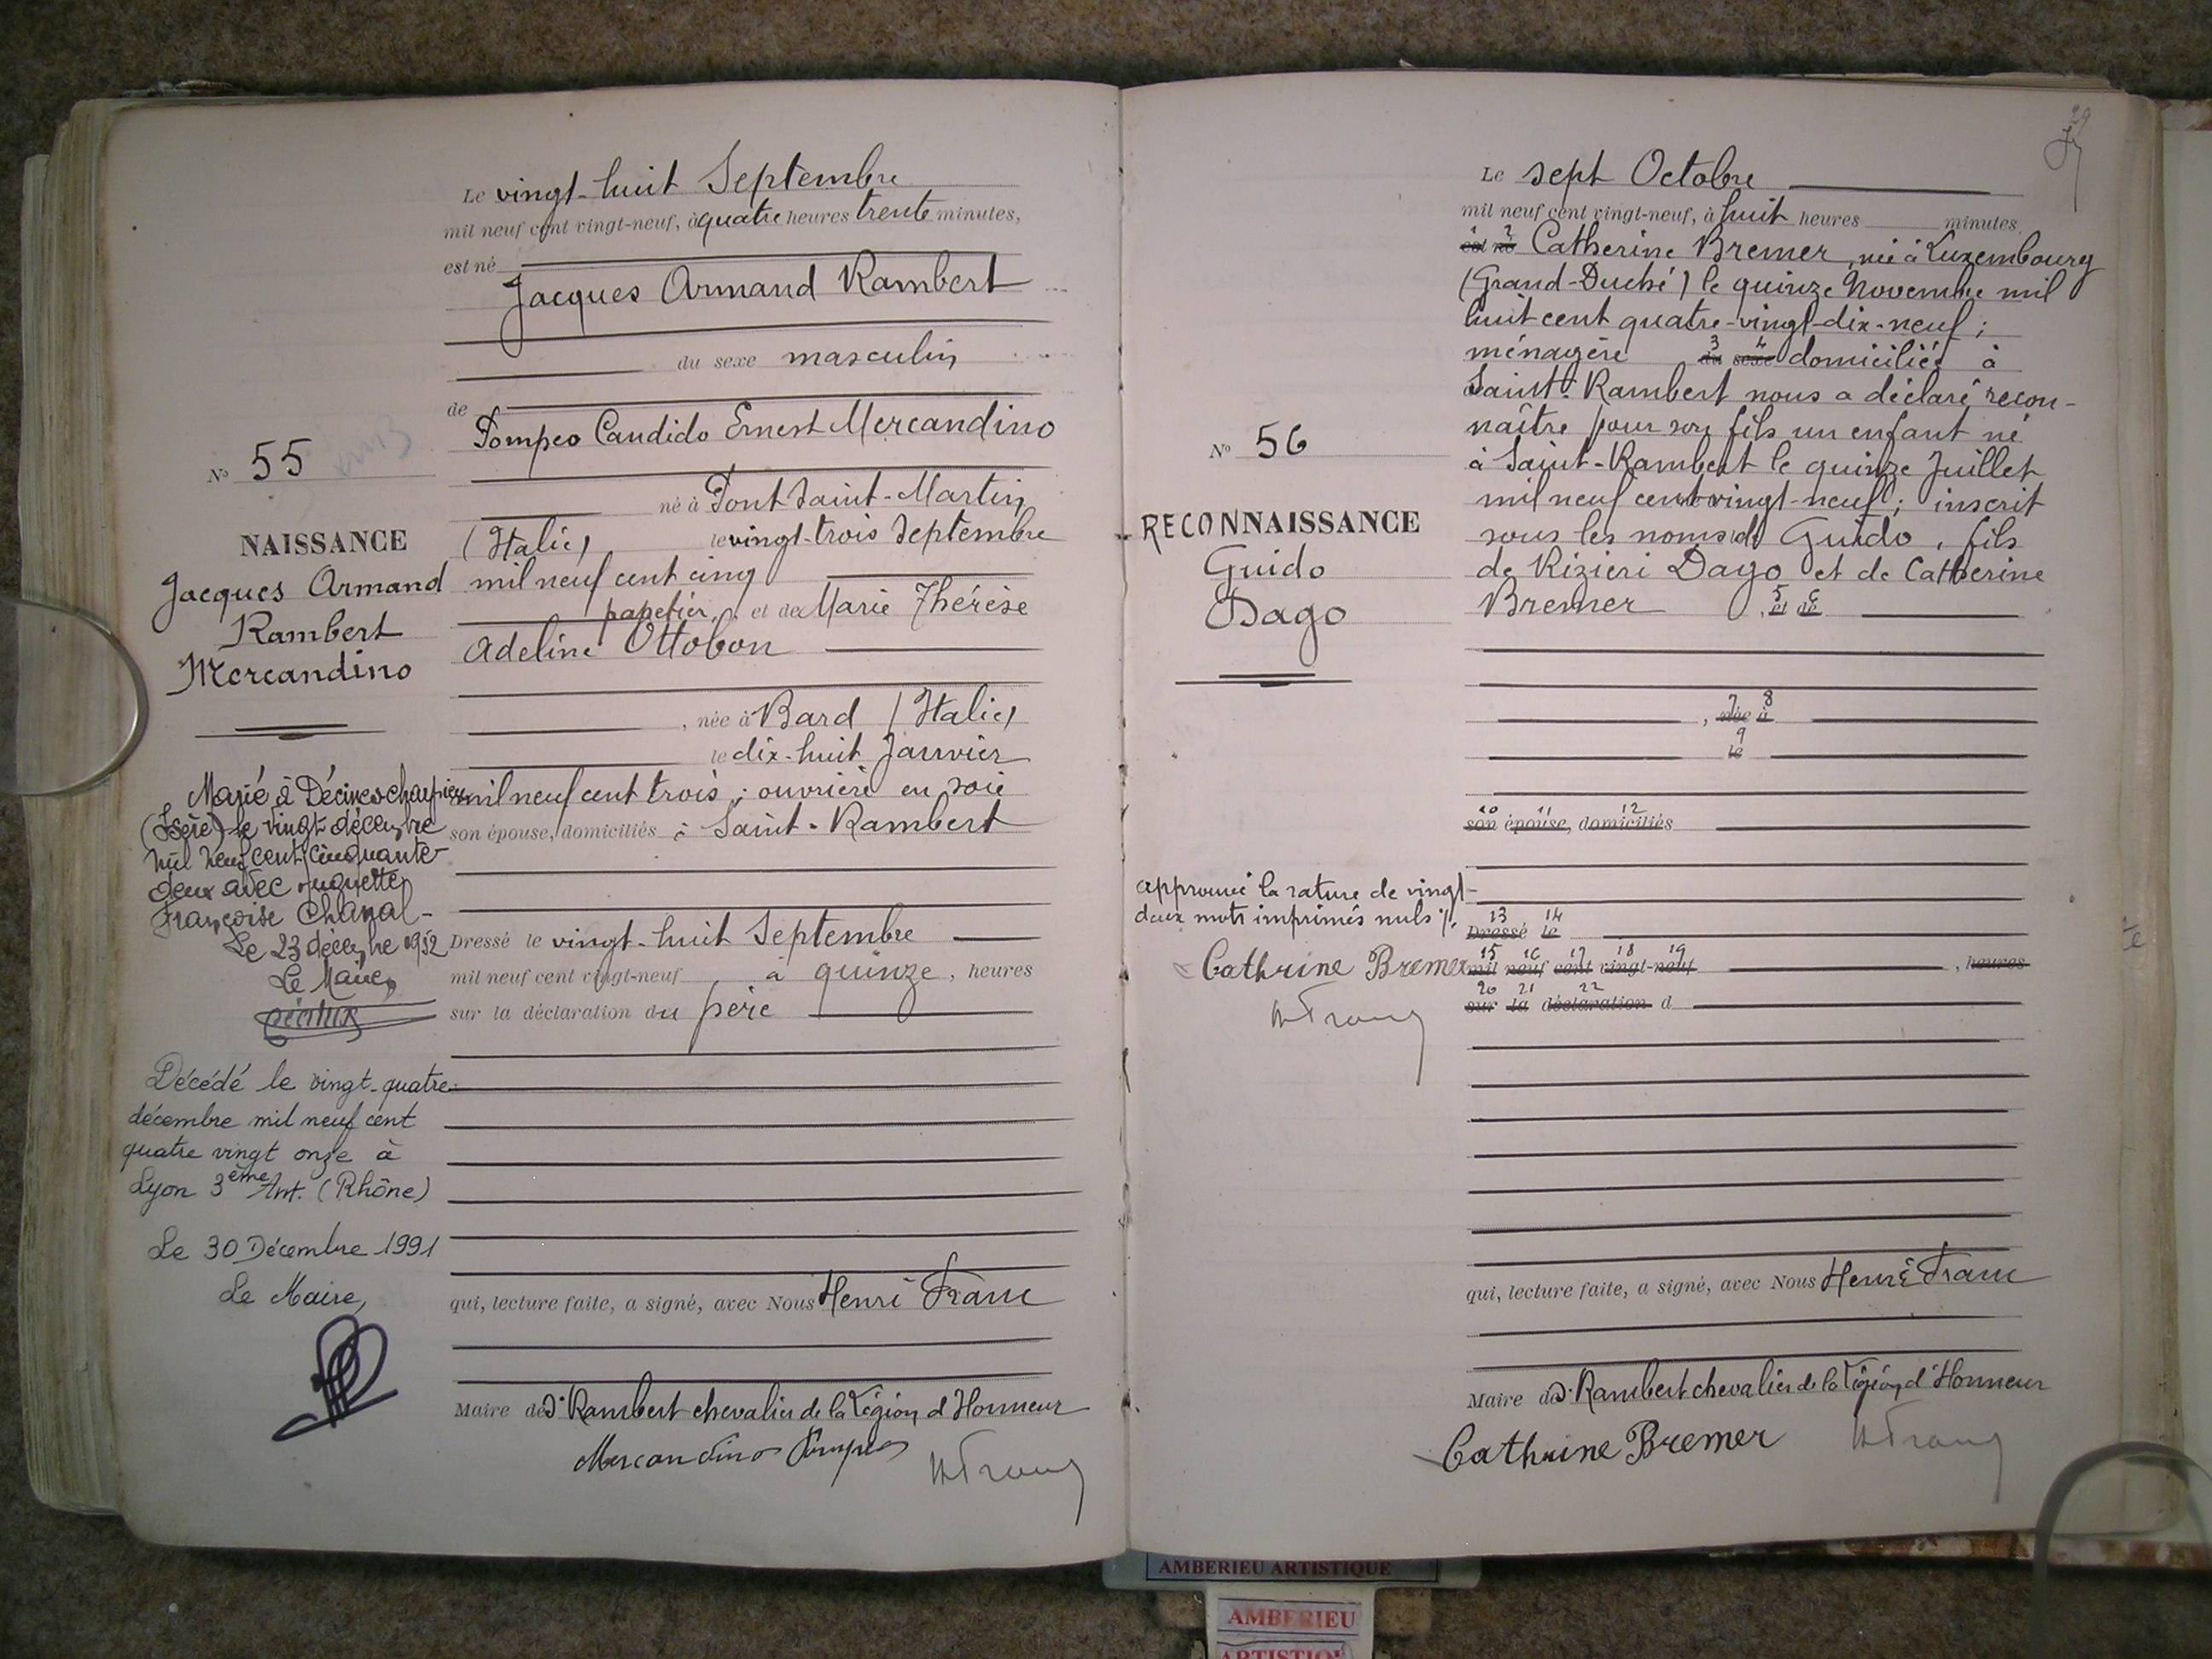 Le vingt-huit Septembre
mil neuf cent vingt-neuf, à quatre heures trente minutes,
est né
Jacques Armand Rambert
du sexe masculin
de
Pompeo Candido Ernest Mercandino
né à Pont Saint-Martin
(Italie) le vingt-trois Septembre
mil neuf cent cinq
papetier, et de Marie Thérèse
Adeline Ottobon
, née à Bard (Italie)
le dix-huit Janvier
mil neuf cent trois ; ouvrière en soie
son épouse, domiciliés à Saint-Rambert
Dressé le vingt-huit Septembre
mil neuf cent vingt-neuf à quinze, heures
sur la déclaration du père
qui, lecture faite, a signé, avec Nous Henri Franc
Maire de St Rambert chevalier de la Légion d'Honneur
Mercandino Pompeo
H Franc
No 55
NAISSANCE
Jacques Armand
Rambert
Mercandino
Marié à Décines Charpieu
(Isère) le vingt décembre
mil neuf cent cinquante
deux avec Huguette
Françoise Chanal-
Le 23 décembre 1952
Le Maire,
Décédé le vingt-quatre
décembre mil neuf cent
quatre vingt onze à
Lyon 3ème Arr. (Rhône)
Le 30 Décembre 1991
Le Maire,
29
Le sept Octobre
mil neuf cent vingt-neuf, à huit heures minutes
1 2
est né Catherine Bremer, née à Luxembourg
(Grand-Duché) le quinze Novembre mil
huit cent quatre-vingt-dix-neuf ;
3 4
ménagère du sexe domiciliée à
Saint-Rambert nous a déclaré recon-
naître pour son fils un enfant né
à Saint-Rambert le quinze Juillet
mil neuf cent vingt-neuf ; inscrit
sous les noms de Guido, fils
de Rizieri Dago et de Catherine
5 6
Bremer , et de
7 8
, née à
9
le
10 11 12
son épouse, domiciliés
13 14
Dressé le
15 16 17 18 19
mil neuf cent vingt-neuf , heures
20 21 22
sur la déclaration d
qui, lecture faite, a signé, avec Nous Henri Franc
Maire de St Rambert chevalier de la Légion d'Honneur
Cathrine Bremer
H Franc
No 56
RECONNAISSANCE
Guido
Dago
approuvé la rature de vingt-
deux mots imprimés nuls ./.
Cathrine Bremer
H Franc
AMBERIEU ARTISTIQUE
AMBERIEU
ARTISTIQUE